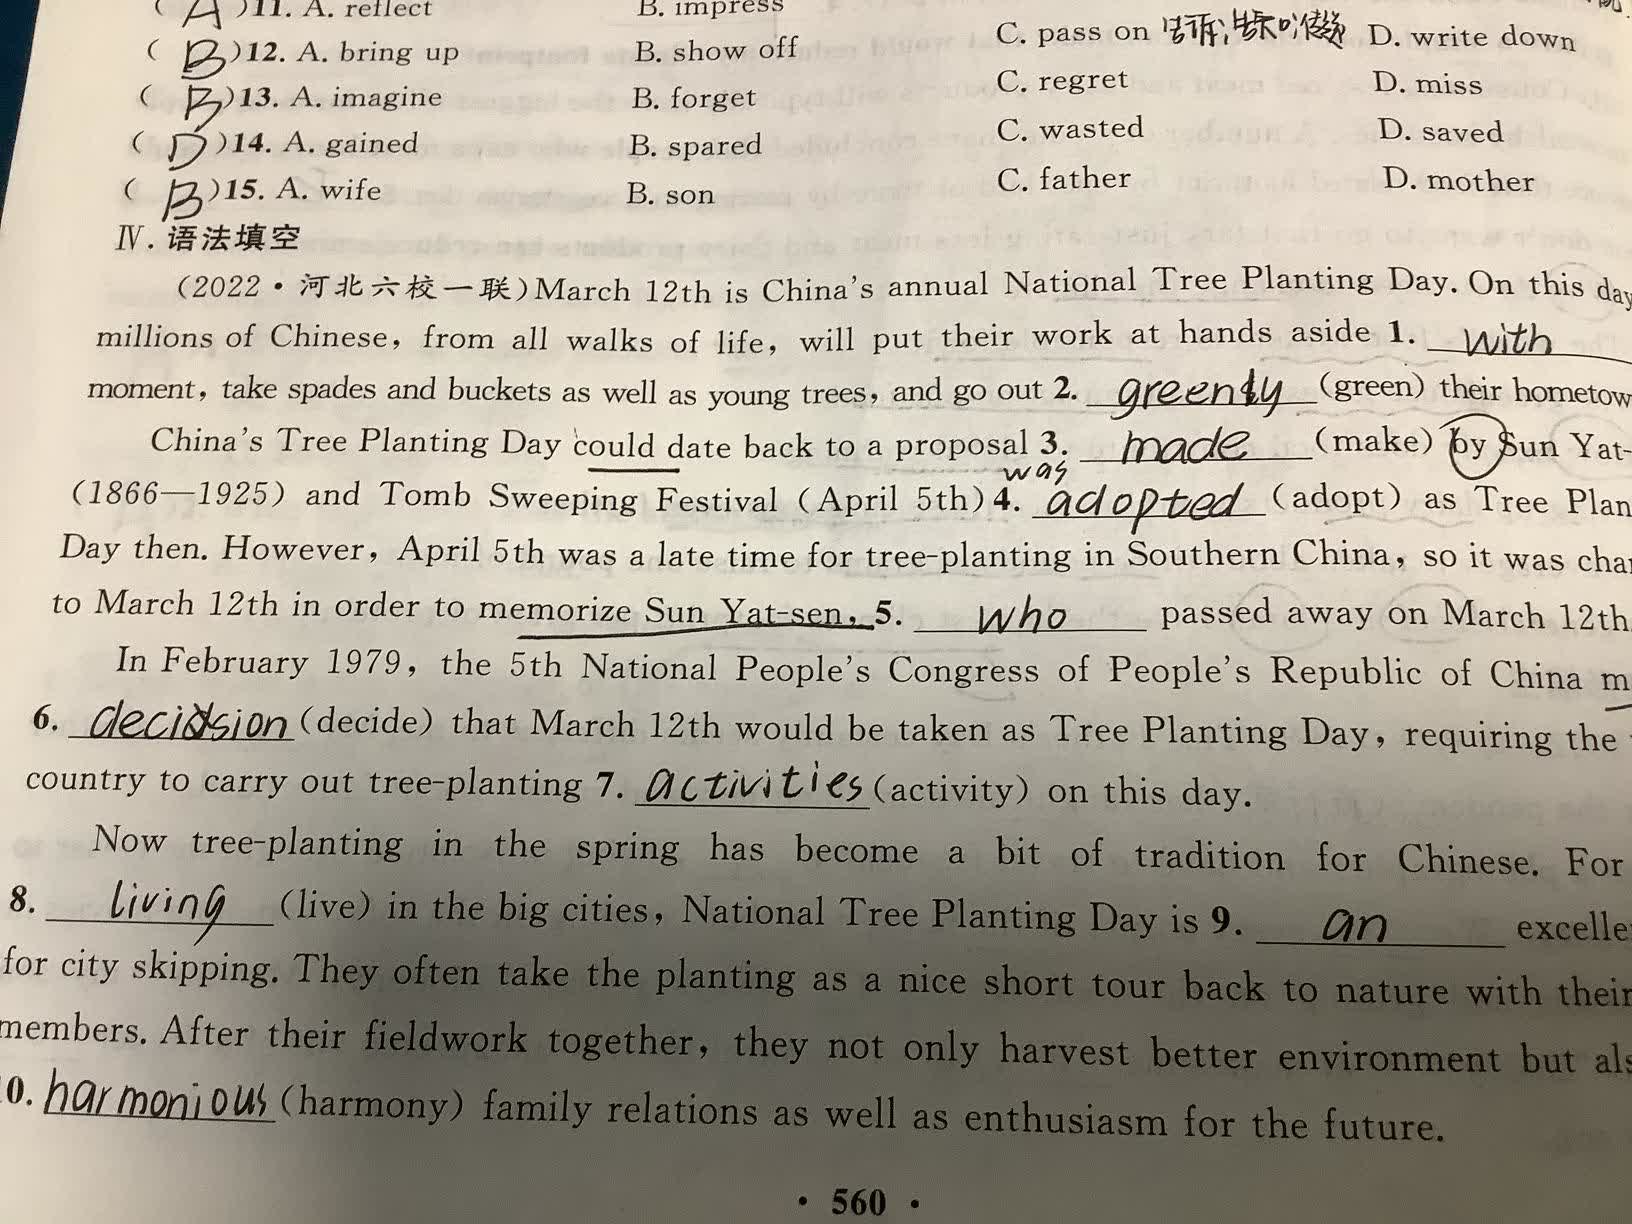 ( A )11. A. reflect B. impress
( B )12. A. bring up B. show off C. pass on 告诉; D. write down
( B )13. A. imagine B. forget C. regret D. miss
( D )14. A. gained B. spared C. wasted D. saved
( B )15. A. wife B. son C. father D. mother
Ⅳ. 语法填空
(2022·河北六校一联)March 12th is China's annual National Tree Planting Day. On this day
millions of Chinese, from all walks of life, will put their work at hands aside 1. with
moment, take spades and buckets as well as young trees, and go out 2. greenly (green) their hometow
China's Tree Planting Day could date back to a proposal 3. made (make) by Sun Yat-
was
(1866—1925) and Tomb Sweeping Festival (April 5th) 4. adopted (adopt) as Tree Plan
Day then. However, April 5th was a late time for tree-planting in Southern China, so it was cha
to March 12th in order to memorize Sun Yat-sen, 5. who passed away on March 12th
In February 1979, the 5th National People's Congress of People's Republic of China m
6. decision (decide) that March 12th would be taken as Tree Planting Day, requiring the
country to carry out tree-planting 7. activities (activity) on this day.
Now tree-planting in the spring has become a bit of tradition for Chinese. For
8. living (live) in the big cities, National Tree Planting Day is 9. an excelle
for city skipping. They often take the planting as a nice short tour back to nature with their
members. After their fieldwork together, they not only harvest better environment but als
0. harmonious (harmony) family relations as well as enthusiasm for the future.
· 560 ·